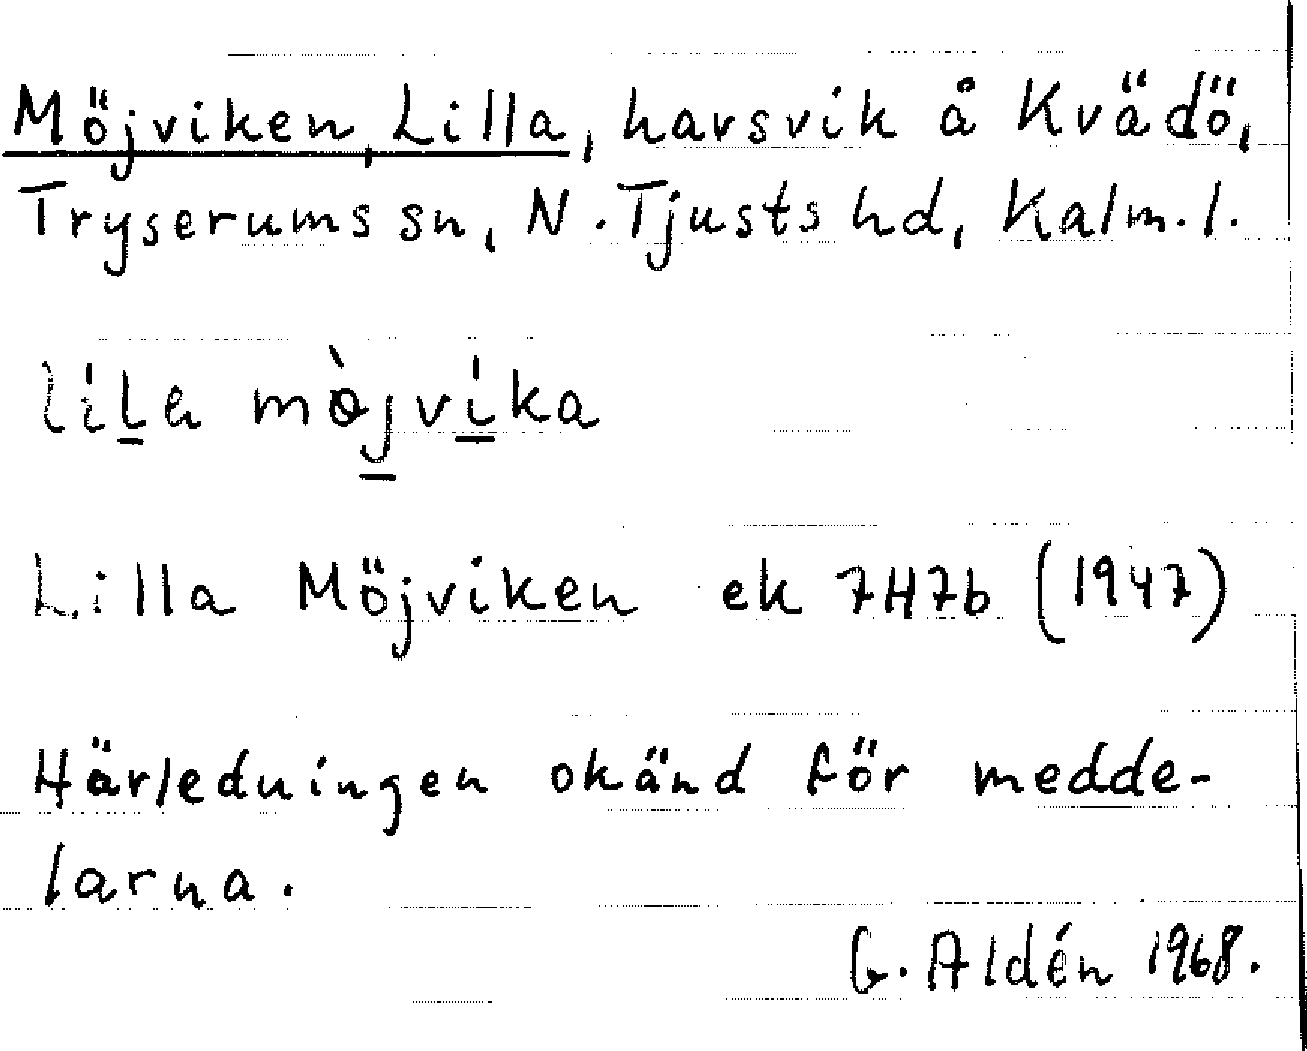 Möjviken, Lilla, havsvik å Kvädö,
Tryserums sn, N. Tjusts hd, Kalm. l.
lila mòjvika
Lilla Möjviken ek 7H7b (1947)
Härledningen okänd för medde-
larna.
G. Aldén 1968.